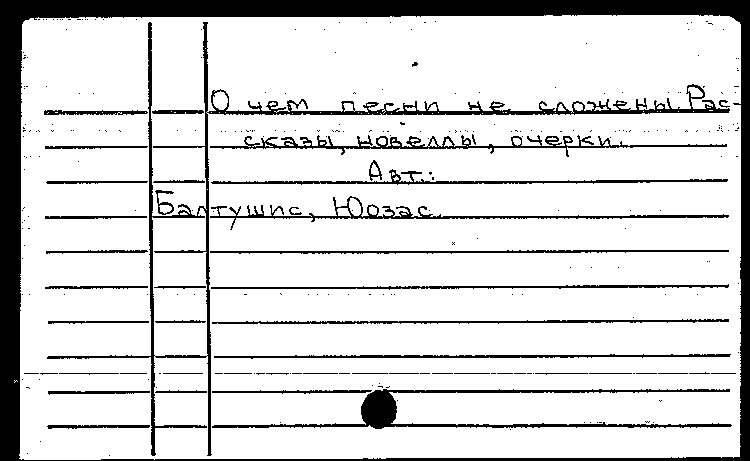 О чем песни не сложены. Рас-
сказы, новеллы, очерки.
Авт.:
Балтушис, Юозас.